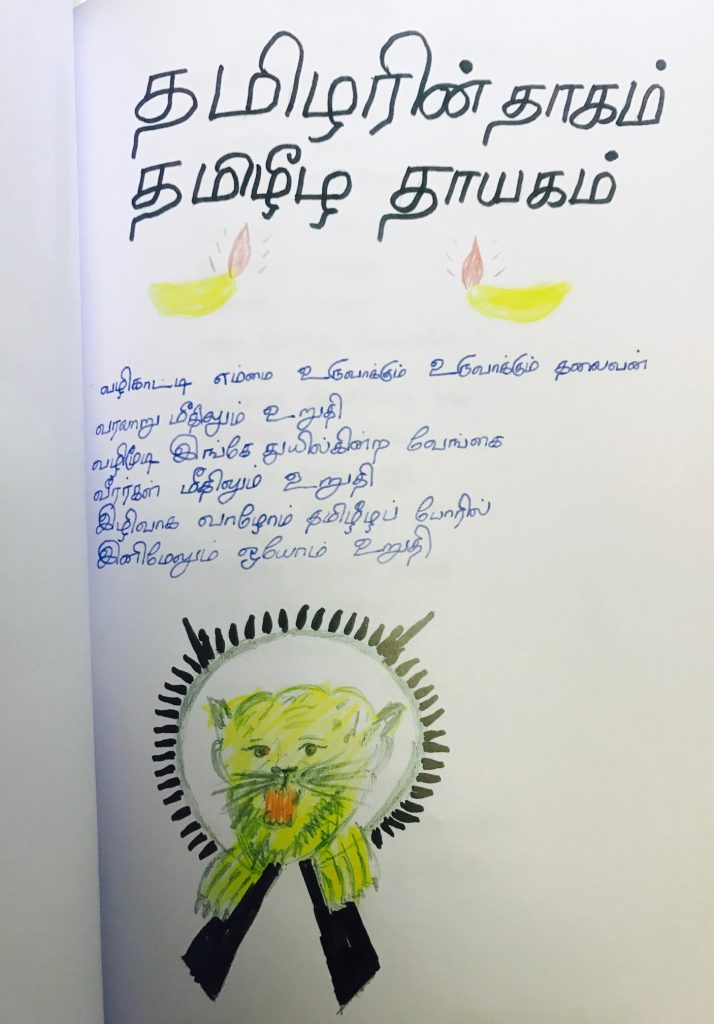 தமிழரின் தாகம்
தமிழீழ தாயகம்
வழிகாட்டி எம்மை உருவாக்கும் உருவாக்கும் தலைவன்
வரலாறு மீதிலும் உறுதி
வழிமூடி இங்கே துயில்கின்ற வேங்கை
வீரர்கள் மீதிலும் உறுதி
இழிவாக வாழோம் தமிழீழப் போரில்
இனிமேலும் ஓயோம் உறுதி